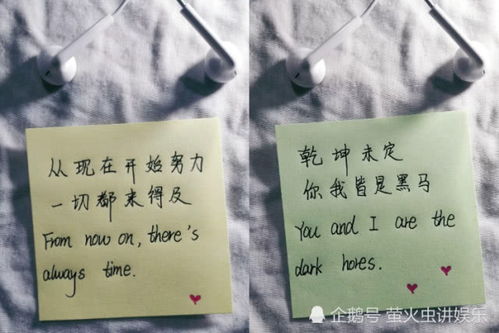 从现在开始努力
一切都来得及
From now on, there's
always time.
乾坤未定
你我皆是黑马
You and I are the
dark hores.
企鹅号 萤火虫讲娱乐